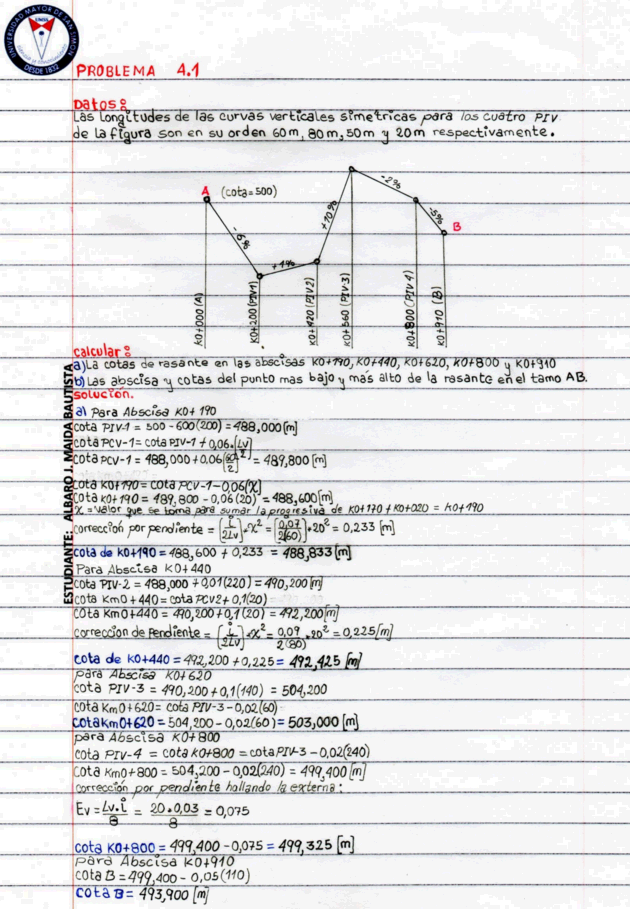 UNIVERSIDAD MAYOR DE SAN SIMON
DESDE 1832
PROBLEMA 4.1
Datos:
Las Longitudes de las curvas verticales simetricas para los cuatro PIV
de la figura son en su orden 60m, 80m, 50m y 20m respectivamente.
A (cota=500)
-6%
+1%
+10%
-2%
-5%
B
K0+000 (A)
K0+200 (PIV1)
K0+420 (PIV2)
K0+560 (PIV-3)
K0+800 (PIV 4)
K0+910 (B)
calcular:
a) La cotas de rasante en las abscisas K0+190, K0+440, K0+620, K0+800 y K0+910
b) Las abscisa y cotas del punto mas bajo y más alto de la rasante en el tamo AB.
solución.
a) Para Abscisa K0+190
cota PIV-1 = 500 - 600(200) = 488,000 [m]
cota PCV-1 = cota PIV-1 + 0,06·[Lv/2]
cota PCV-1 = 488,000 + 0,06[60/2] = 489,800 [m]
cota K0+190 = cota PCV-1 - 0,06(x)
cota K0+190 = 489,800 - 0,06(20) = 488,600 [m]
x = valor que se toma para sumar la progresiva de K0+170 + K0+020 = K0+190
corrección por pendiente = [i/2Lv]·x² = [0,07/2(60)]·20² = 0,233 [m]
cota de K0+190 = 488,600 + 0,233 = 488,833 [m]
Para Abscisa K0+440
cota PIV-2 = 488,000 + 0,01(220) = 490,200 [m]
cota Km0+440 = cota PCV2 + 0,1(20)
cota Km0+440 = 490,200 + 0,1(20) = 492,200 [m]
correccion de Pendiente = [i/2Lv]·x² = 0,09/2(80)·20² = 0,225 [m]
cota de K0+440 = 492,200 + 0,225 = 492,425 [m]
para Abscisa K0+620
cota PIV-3 = 490,200 + 0,1(140) = 504,200
cota Km0+620 = cota PIV-3 - 0,02(60)
cota Km0+620 = 504,200 - 0,02(60) = 503,000 [m]
para Abscisa K0+800
cota PIV-4 = cota K0+800 = cota PIV-3 - 0,02(240)
cota Km0+800 = 504,200 - 0,02(240) = 499,400 [m]
corrección por pendiente hallando la externa:
Ev = Lv·i/8 = 20·0,03/8 = 0,075
cota K0+800 = 499,400 - 0,075 = 499,325 [m]
para Abscisa K0+910
cota B = 499,400 - 0,05(110)
cota B = 493,900 [m]
ESTUDIANTE: ALBARO J. MAIDA BAUTISTA